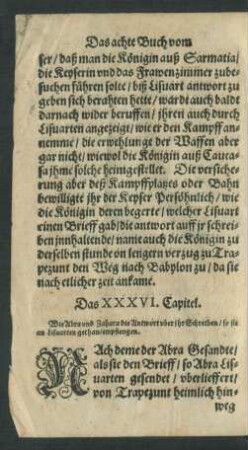 Das achte Buch vom
ser/ daß man die Königin auß Sarmatia/
die Keyserin vnd das Frawenzimmer zube-
suchen führen solte/ biß Lisuart antwort zu
geben sich berahten hette/ ward auch baldt
darnach wider beruffen/ jhren auch durch
Lisuarten angezeigt/ wie er den Kampff an-
nemme/ die erwehlunge der Waffen aber
gar nicht/ wiewol die Königin auß Cauca-
sa jhme solche heimgestellet. Die versiche-
rung aber deß Kampffplatzes oder Bahn
bewilligte jhr der Keyser Persöhnlich/ wie
die Königin deren begerte/ welcher Lisuart
einen Brieff gab/ die antwort auff jr schrei-
ben jnnhaltende/ name auch die Königin zu
derselben stunde on lengern verzug zu Tra-
pezunt den Weg nach Babylon zu/ da sie
nach etlicher zeit ankame.
Das XXXVI. Capitel.
Wie Abra vnd Zahara die Antwort vber jhr Schreiben/ so sie
an Lisuarten gethan/ empfiengen.
NAch deme der Abra Gesandte/
als sie den Brieff/ so Abra Lis-
uarten gesendet/ vberlieffert/
von Trapezunt heimlich hin-
weg